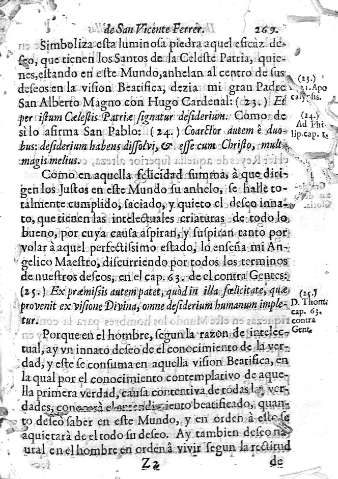 de San Vicente Ferrer. 269.
Simboliza esta luminosa piedra aquel eficaz de-
seo, que tienen los Santos de la Celeste Patria, quie-
nes, estando en este Mundo, anhelan al centro de sus
deseos en la vision Beatifica, dezia mi gran Padre
San Alberto Magno con Hugo Cardenal: (23.) Et
per istum Cælestis Patriæ signatur desiderium. Como de
si lo afirma San Pablo: (24.) Coarctor autem è duo-
bus: desiderium habens dissolvi, & esse cum Christo, multò
magis melius.
(23.)
21. Apo
calypsis.
(24.)
Ad Phi-
lip. cap. 1.
Como en aquella felicidad summa, à que diri-
gen los Justos en este Mundo su anhelo, se halle to-
talmente cumplido, saciado, y quieto el deseo inna-
to, que tienen las intelectuales criaturas de todo lo
bueno, por cuya causa aspiran, y suspiran tanto por
volar à aquel perfectissimo estado, lo enseña mi An-
gelico Maestro, discurriendo por todos los terminos
de nuestros deseos, en el cap. 63. de el contra Gentes:
(25.) Ex præmissis autem patet, quòd in illa fœlicitate, quæ
provenit ex visione Divina, omne desiderium humanum imple-
tur.
(25.)
D. Thom.
cap. 63.
contra
Gent.
Porque en el hombre, segun la razon de intelec-
tual, ay vn innato deseo de el conocimiento de la ver-
dad, y este se consuma en aquella vision Beatifica, en
la qual por el conocimiento contemplativo de aque-
lla primera verdad, causa contentiva de todas las ver-
dades, conocerà el entendimiento beatificado, quan-
to deseo saber en este Mundo, y en orden à esto se
aquietarà de el todo su deseo. Ay tambien deseo na-
tural en el hombre en orden à vivir segun la rectitud
Z 2 de